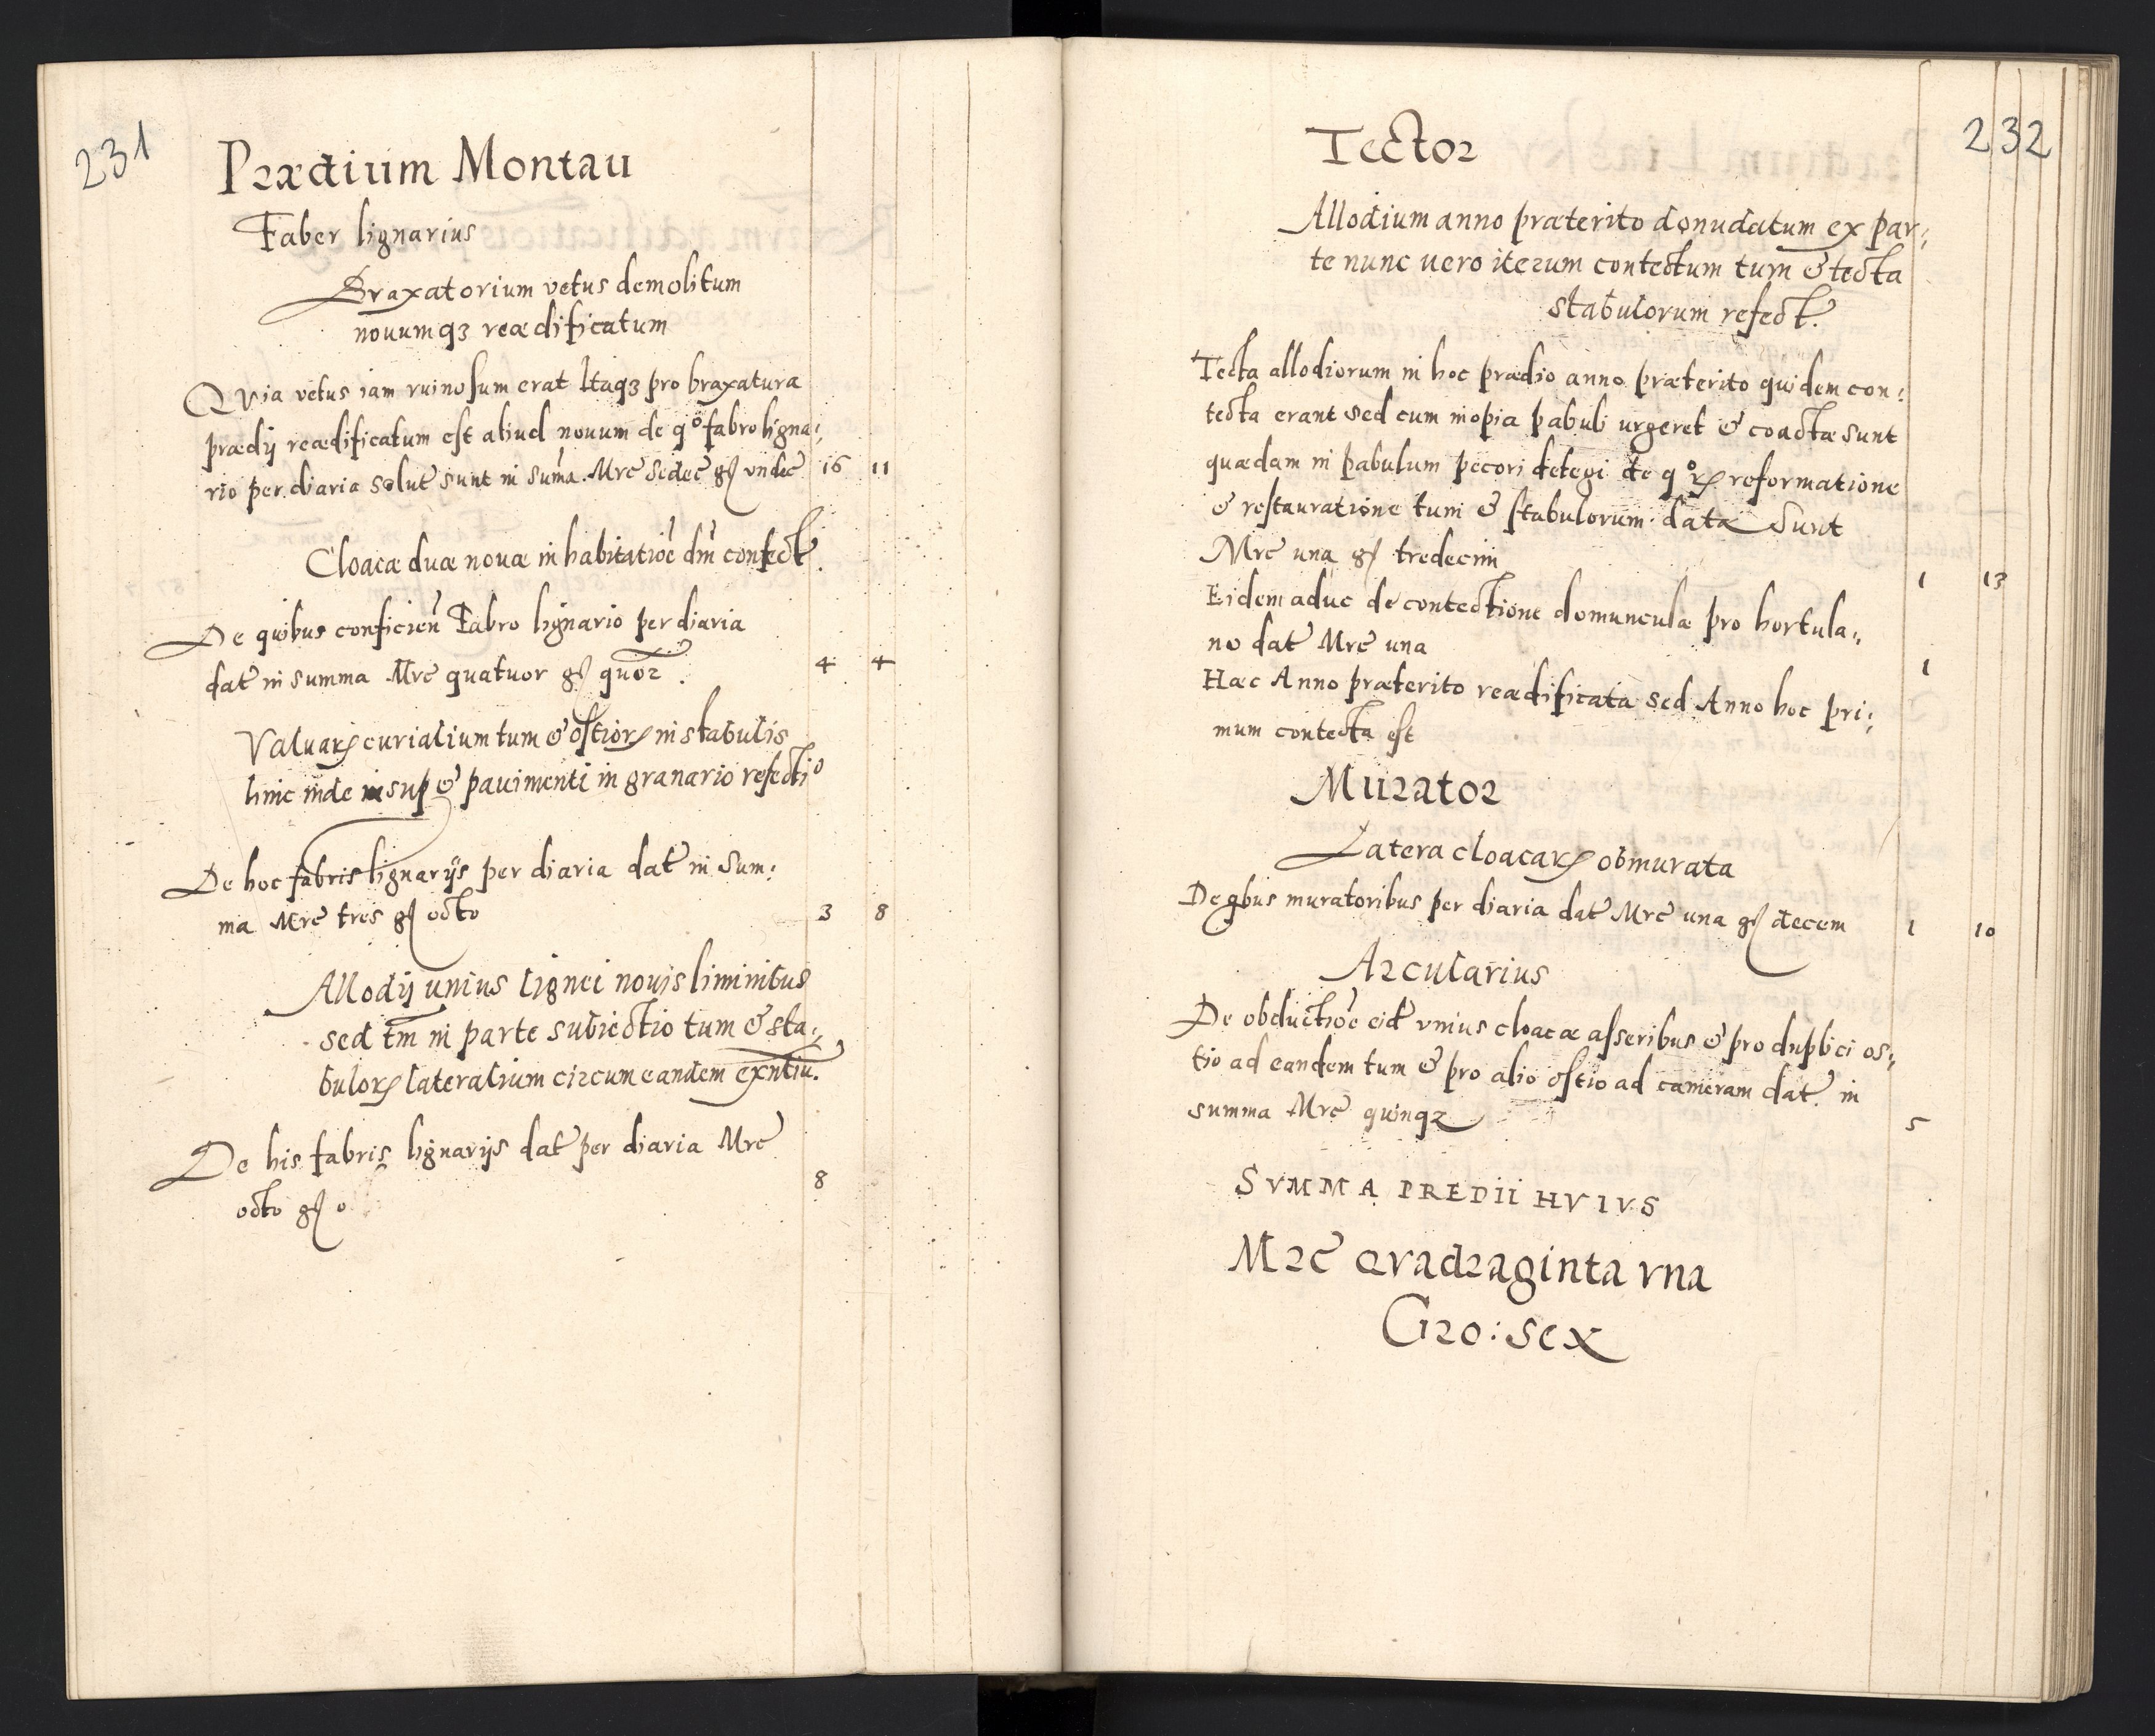 231
Prædium Montau
Faber lignarius
Braxatorium vetus demolitum
nouumqꝫ reædificatum
Quia vetus iam ruinosum erat Itaqꝫ pro braxatura
prædij reædificatum est aliud nouum de qº fabro ligna:
rio per diaria solut̃ sunt in sum̃a Mrc̃ sedec̃ gꝭ vndec̃ 16 11
Cloacæ duæ nouæ in habitatiõe dm̃ confect̃.
De quibus conficieñ Fabro lignario per diaria
dat̃ in summa Mrc̃ quatuor gꝭ quõr. 4 4
Valuarꝝ curialium tum & ostiorꝝ in stabulis
hinc inde insup & pauimenti in granario refectio
De hoc fabris lignarijs per diaria dat̃ in Sum:
ma Mrc̃ tres gꝭ octo 3 8
Allodij unius lignei nouis liminibus
sed tm̃ in parte subiectio tum & sta:
bulorꝝ lateralium circum eandem exñtiu.
De his fabris lignarijs dat̃ per diaria Mrc̃
octo gꝭ o 8
232
Tector
Allodium anno præterito donudatum ex par:
te nunc uero iterum contectum tum & tecta
stabulorum refect.
Tecta allodiorum in hoc prædio anno præterito quidem con:
tecta erant sed cum inopia pabuli urgeret & coactæ sunt
quædam in pabulum pecori detegi de qºrꝝ reformatione
& restauratione tum & stabulorum data Sunt
Mrc̃ una gꝭ tredecim 1 13
Eidem aduc de contectione domunculæ pro hortula:
no dat̃ Mrc̃ una 1
Hæc Anno præterito reædificata sed Anno hoc pri:
mum contecta est
Murator
Latera cloacarꝝ obmurata
De qbus muratoribus per diaria dat̃ Mrc̃ una gꝭ decem 1 10
Arcularius
De obductiõe eid̃ vnius cloacæ asseribus & pro duplici os:
tio ad eandem tum & pro alio ostio ad cameram dat̃ in
summa Mrc̃ quinqꝫ 5
SVMMA PREDII HVIVS
Mrc̃ Qvadraginta vna
Gro: sex